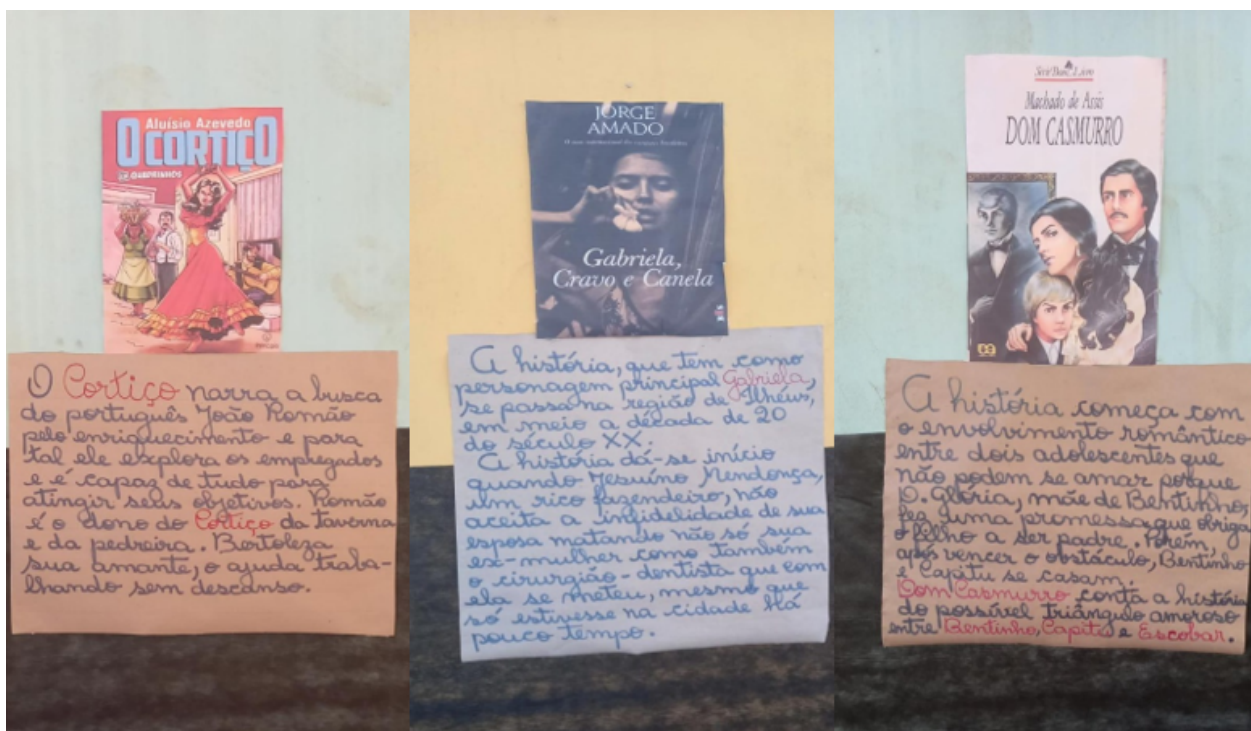 Aluísio Azevedo
O CORTIÇO
EM QUADRINHOS
O Cortiço narra a busca
do português João Romão
pelo enriquecimento e para
tal ele explora os empregados
e é capaz de tudo para
atingir seus objetivos. Romão
é o dono do Cortiço da taverna
e da pedreira. Bertoleza
sua amante, o ajuda traba-
lhando sem descanso.
JORGE
AMADO
Gabriela,
Cravo e Canela
A história, que tem como
personagem principal Gabriela,
se passa na região de Ilhéus,
em meio a década de 20
do século XX.
A história dá-se início
quando Jesuíno Mendonça,
um rico fazendeiro, não
aceita a infidelidade de sua
esposa matando não só sua
ex-mulher como também
o cirurgião-dentista que com
ela se meteu, mesmo que
só estivesse na cidade há
pouco tempo.
Série Bom Livro
Machado de Assis
DOM CASMURRO
A história começa com
o envolvimento romântico
entre dois adolescentes que
não podem se amar porque
D. Glória, mãe de Bentinho,
fez uma promessa que obriga
o filho a ser padre. Porém,
após vencer o obstáculo, Bentinho
e Capitu se casam.
Dom Casmurro conta a história
do possível triângulo amoroso
entre Bentinho, Capitu e Escobar.